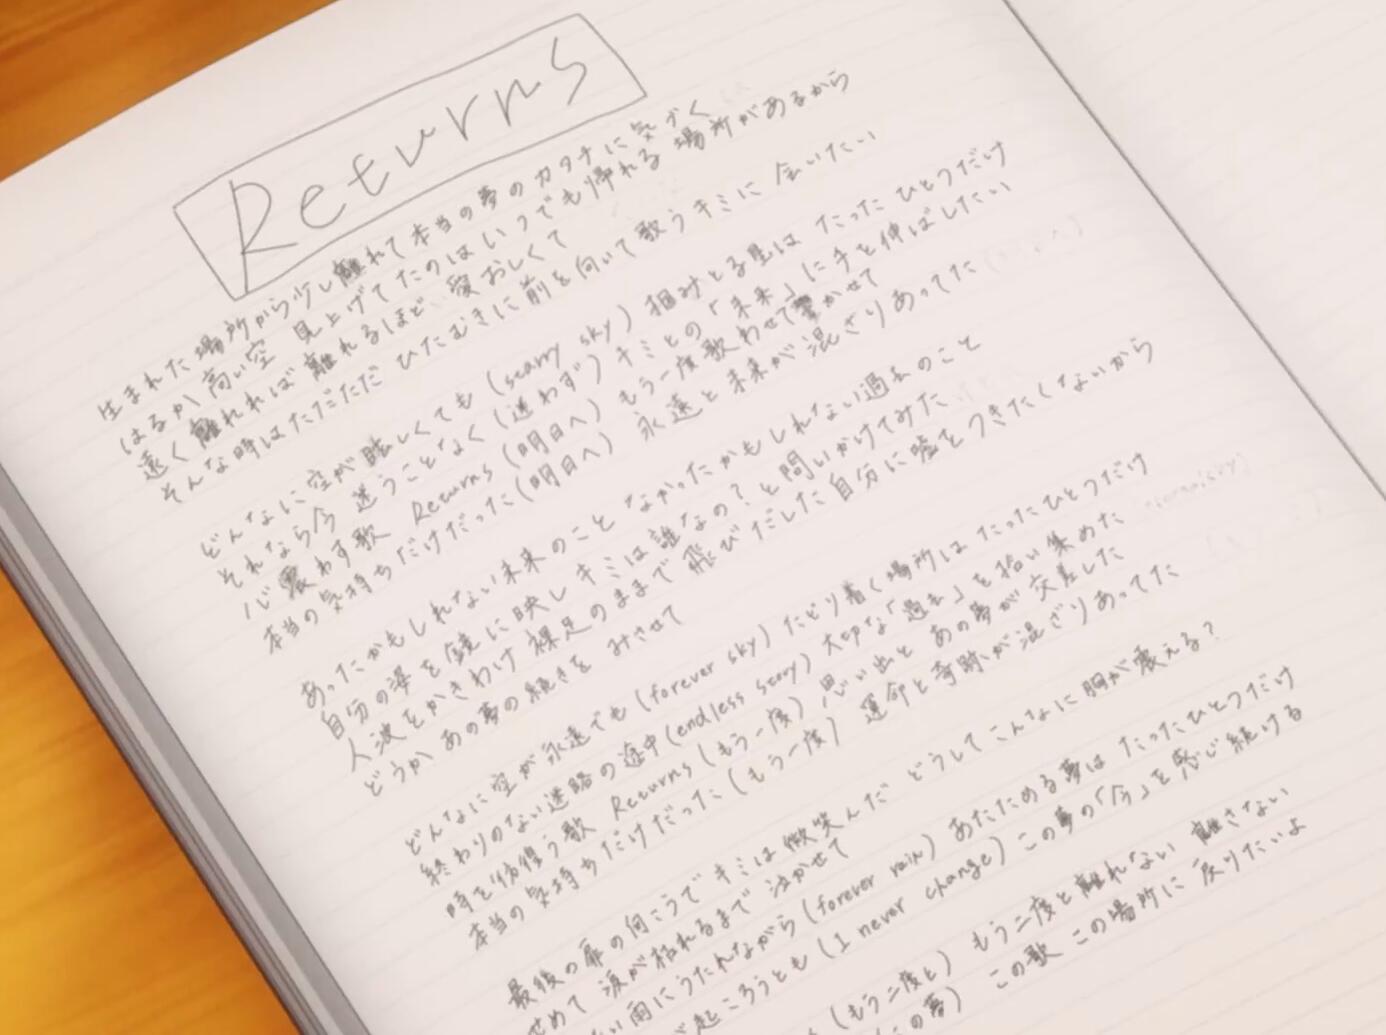 Returns
生まれた場所から少し離れて本当の夢のカタチに気づく
はるか高い空 見上げてたのはいつでも帰れる場所があるから
遠く離れれば離れるほど愛おしくて
そんな時はただただひたむきに前を向いて歌うキミに会いたい
どんなに空が眩しくても (starry sky) 掴みとる星はたったひとつだけ
それなら今迷うことなく (迷わず) キミとの「未来」に手を伸ばしたい
心震わす歌 Returns (明日へ) もう一度歌わせて響かせて
本当の気持ちだけだった (明日へ) 永遠と未来が混ざりあってた
あったかもしれない未来のこと なかったかもしれない過去のこと
自分の姿を鏡に映しキミは誰なの?と問いかけてみた
人波をかきわけ裸足のままで飛びだした自分に嘘をつきたくないから
どうかあの夢の続きをみさせて
どんなに空が永遠でも (forever sky) たどり着く場所はたったひとつだけ
終わりのない迷路の途中 (endless story) 大切な「過去」を拾い集めた
時を彷徨う歌 Returns (もう一度) 思い出とあの夢が交差した
本当の気持ちだけだった (もう一度) 運命と奇跡が混ざりあってた
最後の扉の向こうでキミは微笑んだ どうしてこんなに胸が震える?
せめて涙が枯れるまで泣かせて
い雨にうたれながら (forever rain) あたためる夢はたったひとつだけ
が起ころうとも (I never change) この夢の「今」を感じ続ける
(もう二度と) もう二度と離れない離さない
の夢) この歌この場所に戻りたいよ